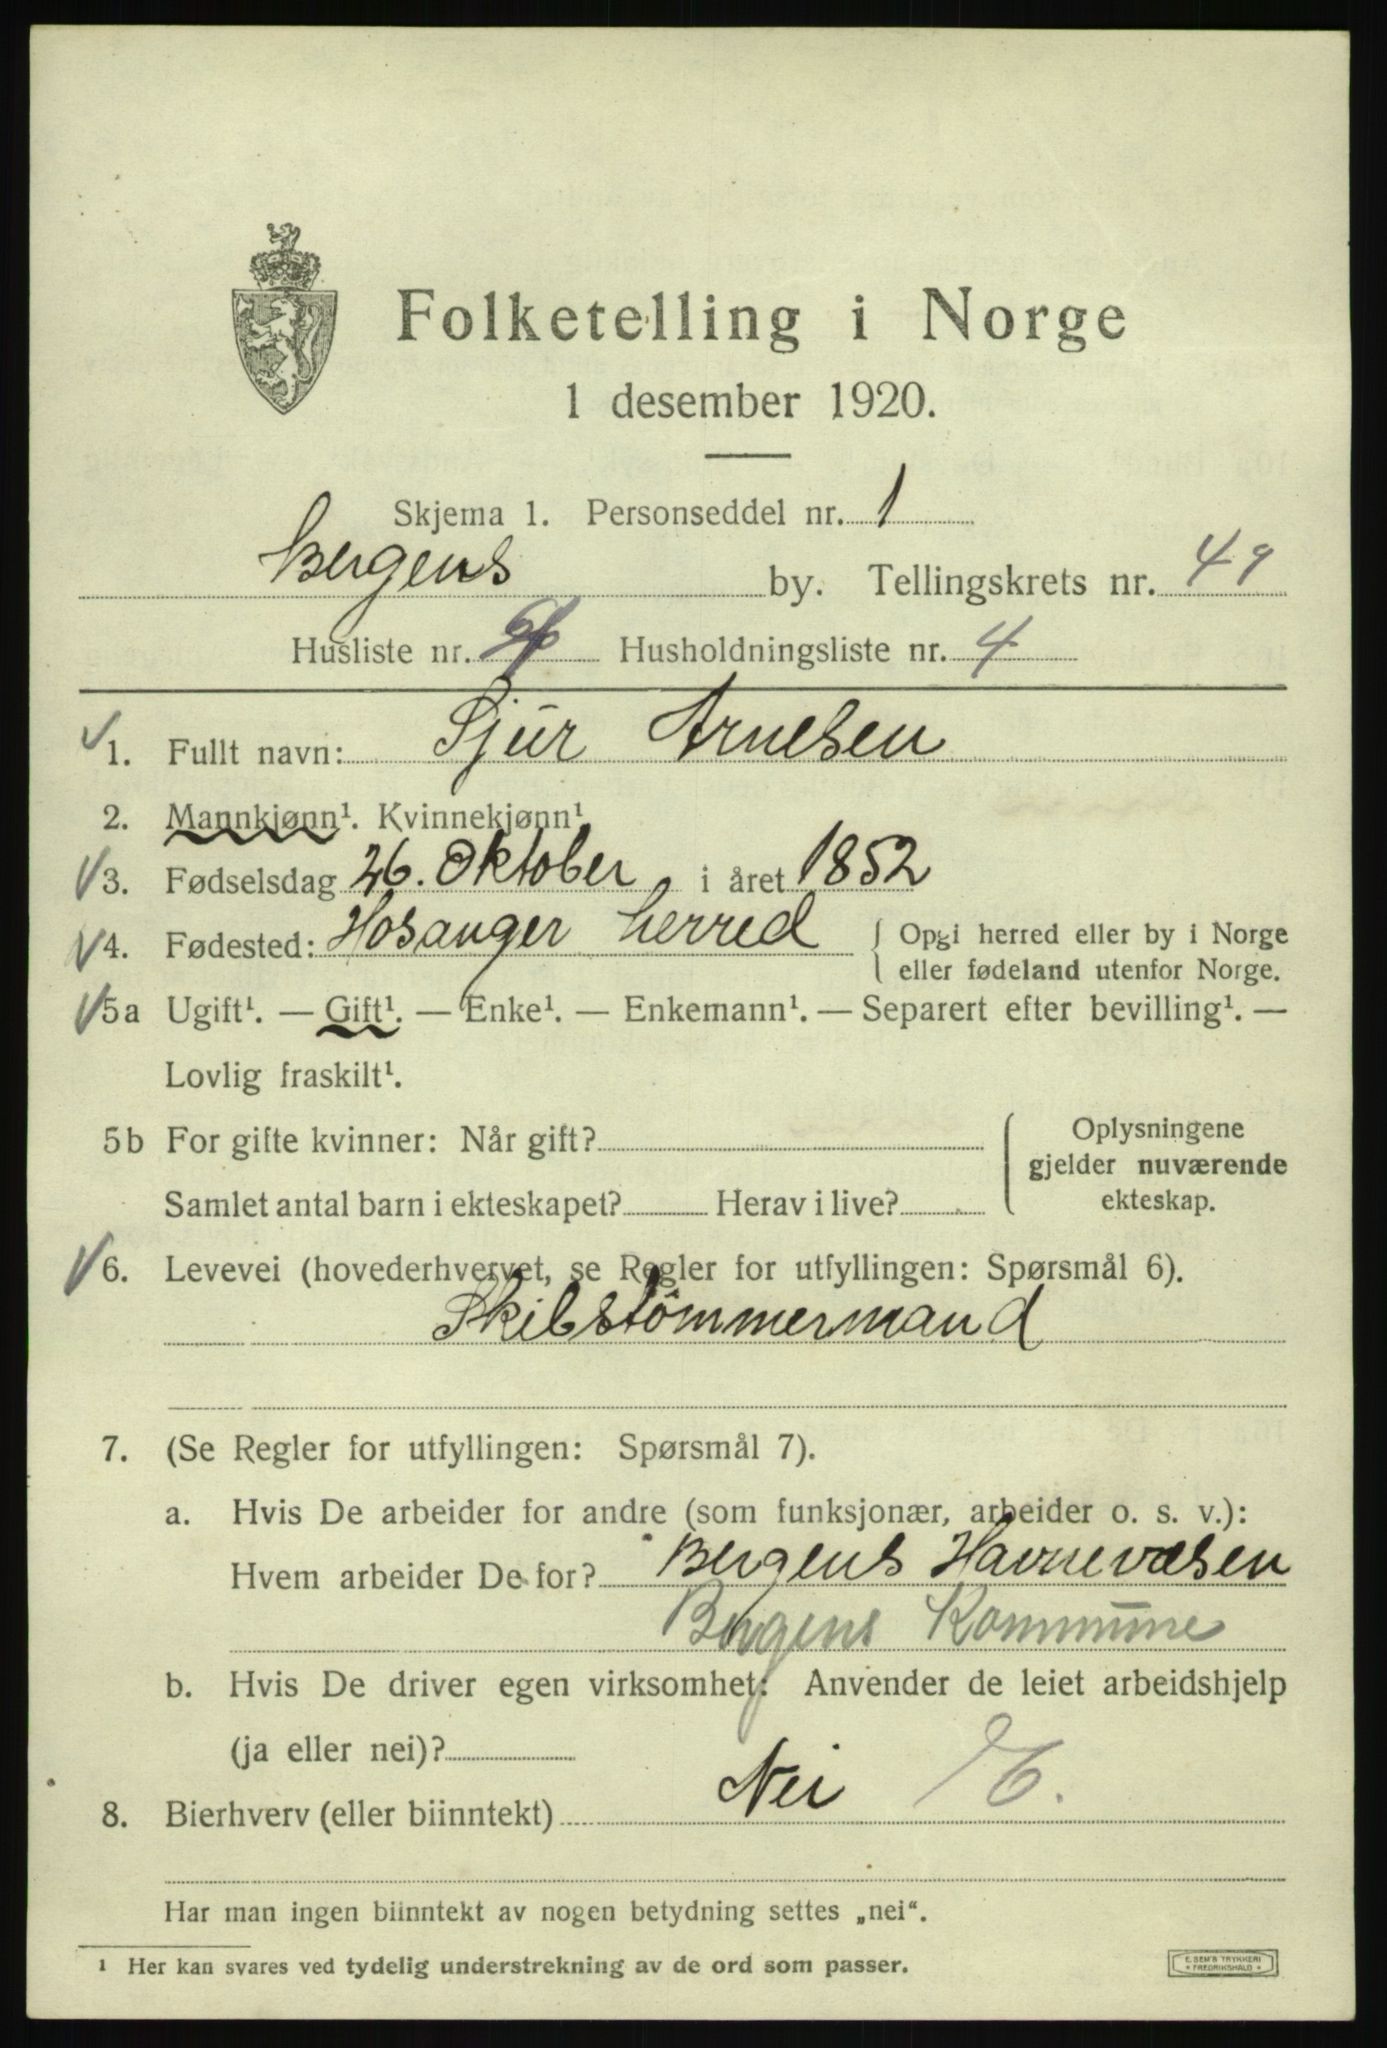 Folketelling i Norge
1 desember 1920.
Skjema 1. Personseddel nr. 1
Bergens by. Tellingskrets nr. 49
Husliste nr. Husholdningsliste nr. 4
1. Fullt navn: Sjur Arnesen
2. Mannkjønn¹. Kvinnekjønn¹
3. Fødselsdag 26. Oktober i året 1852
4. Fødested: Hosanger herred { Opgi herred eller by i Norge
eller fødeland utenfor Norge.
5a Ugift¹. — Gift¹. — Enke¹. — Enkemann¹. — Separert efter bevilling¹. —
Lovlig fraskilt¹.
5b For gifte kvinner: Når gift? Oplysningene
gjelder nuværende
Samlet antal barn i ekteskapet? Herav i live? ekteskap.
6. Levevei (hovederhvervet, se Regler for utfyllingen: Spørsmål 6).
Skibstömmermand
7. (Se Regler for utfyllingen: Spørsmål 7).
a. Hvis De arbeider for andre (som funksjonær, arbeider o. s. v.):
Hvem arbeider De for? Bergens Havnevæsen
Bergens Kommune
b. Hvis De driver egen virksomhet: Anvender de leiet arbeidshjelp
(ja eller nei)?
8. Bierhverv (eller biinntekt) Nei
Har man ingen biinntekt av nogen betydning settes „nei“.
¹ Her kan svares ved tydelig understrekning av de ord som passer.
E. SEM'S TRYKKERI
* FREDRIKSHALD *